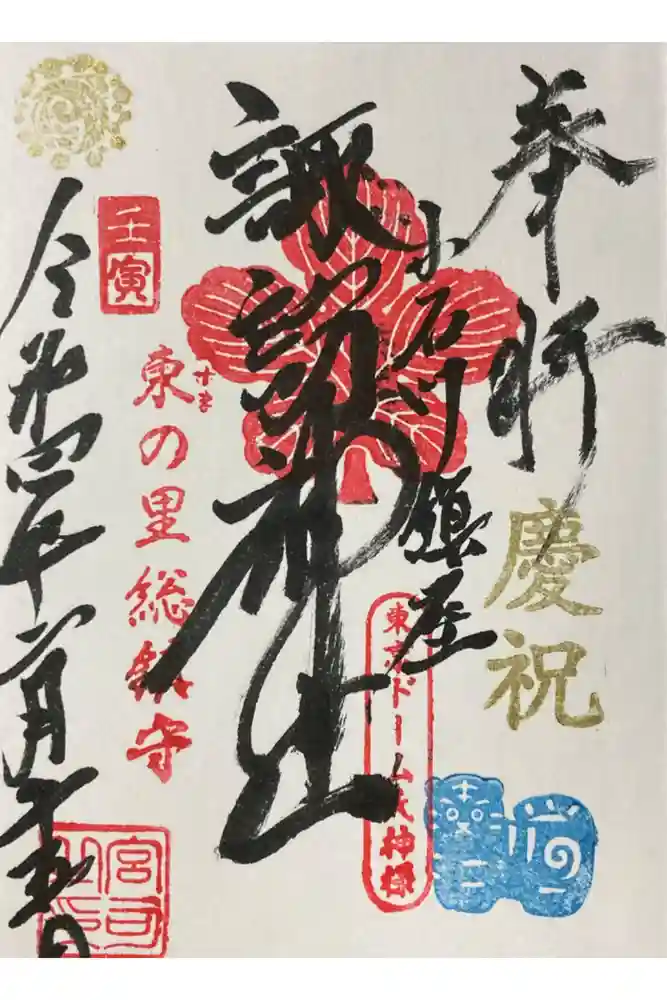 奉拝
慶祝
小石川鎮座
東京ドーム氏神様
諏訪神社
東の里総鎮守
壬寅
令和四年六月十五日
宮司
之印